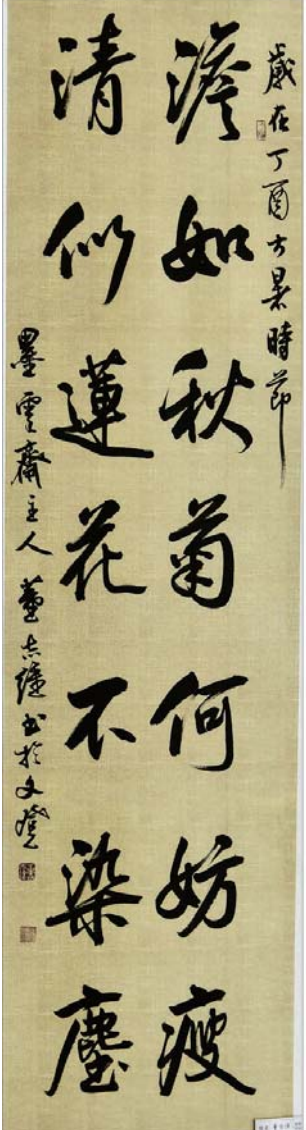 歲在丁酉大暑時節
澹如秋菊何妨瘦
清似蓮花不染塵
墨雲齋主人董志强書於文登